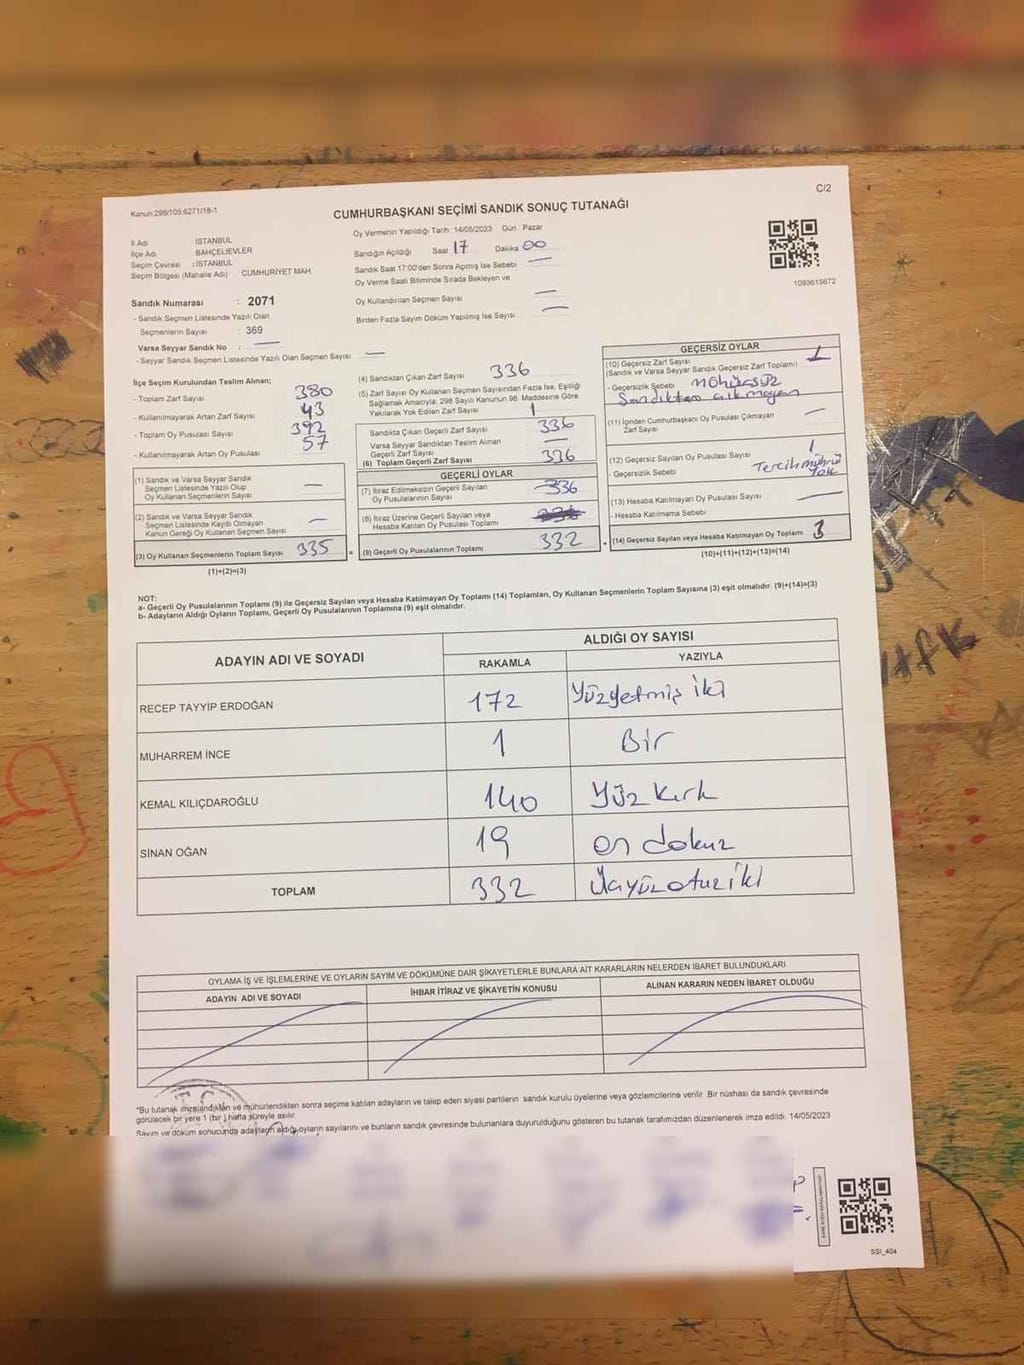 C/2
Kanun:298/105,6271/18-1
CUMHURBAŞKANI SEÇİMİ SANDIK SONUÇ TUTANAĞI
Oy Vermenin Yapıldığı Tarih :14/05/2023 Gün : Pazar
İl Adı : İSTANBUL
İlçe Adı : BAHÇELİEVLER
Seçim Çevresi : İSTANBUL
Seçim Bölgesi (Mahalle Adı) CUMHURİYET MAH.
Sandığın Açıldığı Saat 17 Dakika 00
Sandık Saat 17:00'den Sonra Açımış İse Sebebi —
Oy Verme Saati Bitiminde Sırada Bekleyen ve
Oy Kullandırılan Seçmen Sayısı —
Birden Fazla Sayım Döküm Yapılmış İse Sayısı —
1093615672
Sandık Numarası : 2071
- Sandık Seçmen Listesinde Yazılı Olan
Seçmenlerin Sayısı : 369
Varsa Seyyar Sandık No : —
- Seyyar Sandık Seçmen Listesinde Yazılı Olan Seçmen Sayısı : —
İlçe Seçim Kurulundan Teslim Alınan;
- Toplam Zarf Sayısı 380
- Kullanılmayarak Artan Zarf Sayısı 43
- Toplam Oy Pusulası Sayısı 392
- Kullanılmayarak Artan Oy Pusulası 57
(1) Sandık ve Varsa Seyyar Sandık
Seçmen Listesinde Yazılı Olup
Oy Kullanan Seçmenlerin Sayısı —
(2) Sandık ve Varsa Seyyar Sandık
Seçmen Listesinde Kayıtlı Olmayan
Kanun Gereği Oy Kullanan Seçmen Sayısı —
(3) Oy Kullanan Seçmenlerin Toplam Sayısı 335
(1)+(2)=(3)
(4) Sandıktan Çıkan Zarf Sayısı 336
(5) Zarf Sayısı Oy Kullanan Seçmen Sayısından Fazla İse, Eşitliği
Sağlamak Amacıyla; 298 Sayılı Kanunun 98. Maddesine Göre
Yakılarak Yok Edilen Zarf Sayısı 1
Sandıkta Çıkan Geçerli Zarf Sayısı 336
Varsa Seyyar Sandıktan Teslim Alınan
Geçerli Zarf Sayısı —
(6) Toplam Geçerli Zarf Sayısı 336
GEÇERLİ OYLAR
(7) İtiraz Edilmeksizin Geçerli Sayılan
Oy Pusulalarının Sayısı 336
(8) İtiraz Üzerine Geçerli Sayılan veya
Hesaba Katılan Oy Pusulası Toplamı
(9) Geçerli Oy Pusulalarının Toplamı 332
GEÇERSİZ OYLAR
(10) Geçersiz Zarf Sayısı 1
(Sandık ve Varsa Seyyar Sandık Geçersiz Zarf Toplamı)
- Geçersizlik Sebebi mühürsüz
Sandıktan çıkmayan
(11) İçinden Cumhurbaşkanı Oy Pusulası Çıkmayan
Zarf Sayısı —
(12) Geçersiz Sayılan Oy Pusulası Sayısı 1
- Geçersizlik Sebebi Tercih mührü
Yok
(13) Hesaba Katılmayan Oy Pusulası Sayısı —
- Hesaba Katılmama Sebebi
(14) Geçersiz Sayılan veya Hesaba Katılmayan Oy Toplamı 3
(10)+(11)+(12)+(13)=(14)
NOT:
a- Geçerli Oy Pusulalarının Toplamı (9) ile Geçersiz Sayılan veya Hesaba Katılmayan Oy Toplamı (14) Toplamları, Oy Kullanan Seçmenlerin Toplam Sayısına (3) eşit olmalıdır. (9)+(14)=(3)
b- Adayların Aldığı Oyların Toplamı, Geçerli Oy Pusulalarının Toplamına (9) eşit olmalıdır.
ADAYIN ADI VE SOYADI
ALDIĞI OY SAYISI
RAKAMLA YAZIYLA
RECEP TAYYİP ERDOĞAN 172 Yüzyetmiş iki
MUHARREM İNCE 1 Bir
KEMAL KILIÇDAROĞLU 140 Yüz kırk
SİNAN OĞAN 19 on dokuz
TOPLAM 332 Üçyüzotuziki
OYLAMA İŞ VE İŞLEMLERİNE VE OYLARIN SAYIM VE DÖKÜMÜNE DAİR ŞİKAYETLERLE BUNLARA AİT KARARLARIN NELERDEN İBARET BULUNDUKLARI
ADAYIN ADI VE SOYADI İHBAR İTİRAZ VE ŞİKAYETİN KONUSU ALINAN KARARIN NEDEN İBARET OLDUĞU
*Bu tutanak imzalandıktan ve mühürlendikten sonra seçime katılan adayların ve talep eden siyasi partilerin sandık kurulu üyelerine veya gözlemcilerine verilir. Bir nüshası da sandık çevresinde
görülecek bir yere 1 (bir ) hafta süreyle asılır.
Sayım ve döküm sonucunda adayların aldığı oyların sayılarını ve bunların sandık çevresinde bulunanlara duyurulduğunu gösteren bu tutanak tarafımızdan düzenlenerek imza edildi. 14/05/2023
SSİ_404